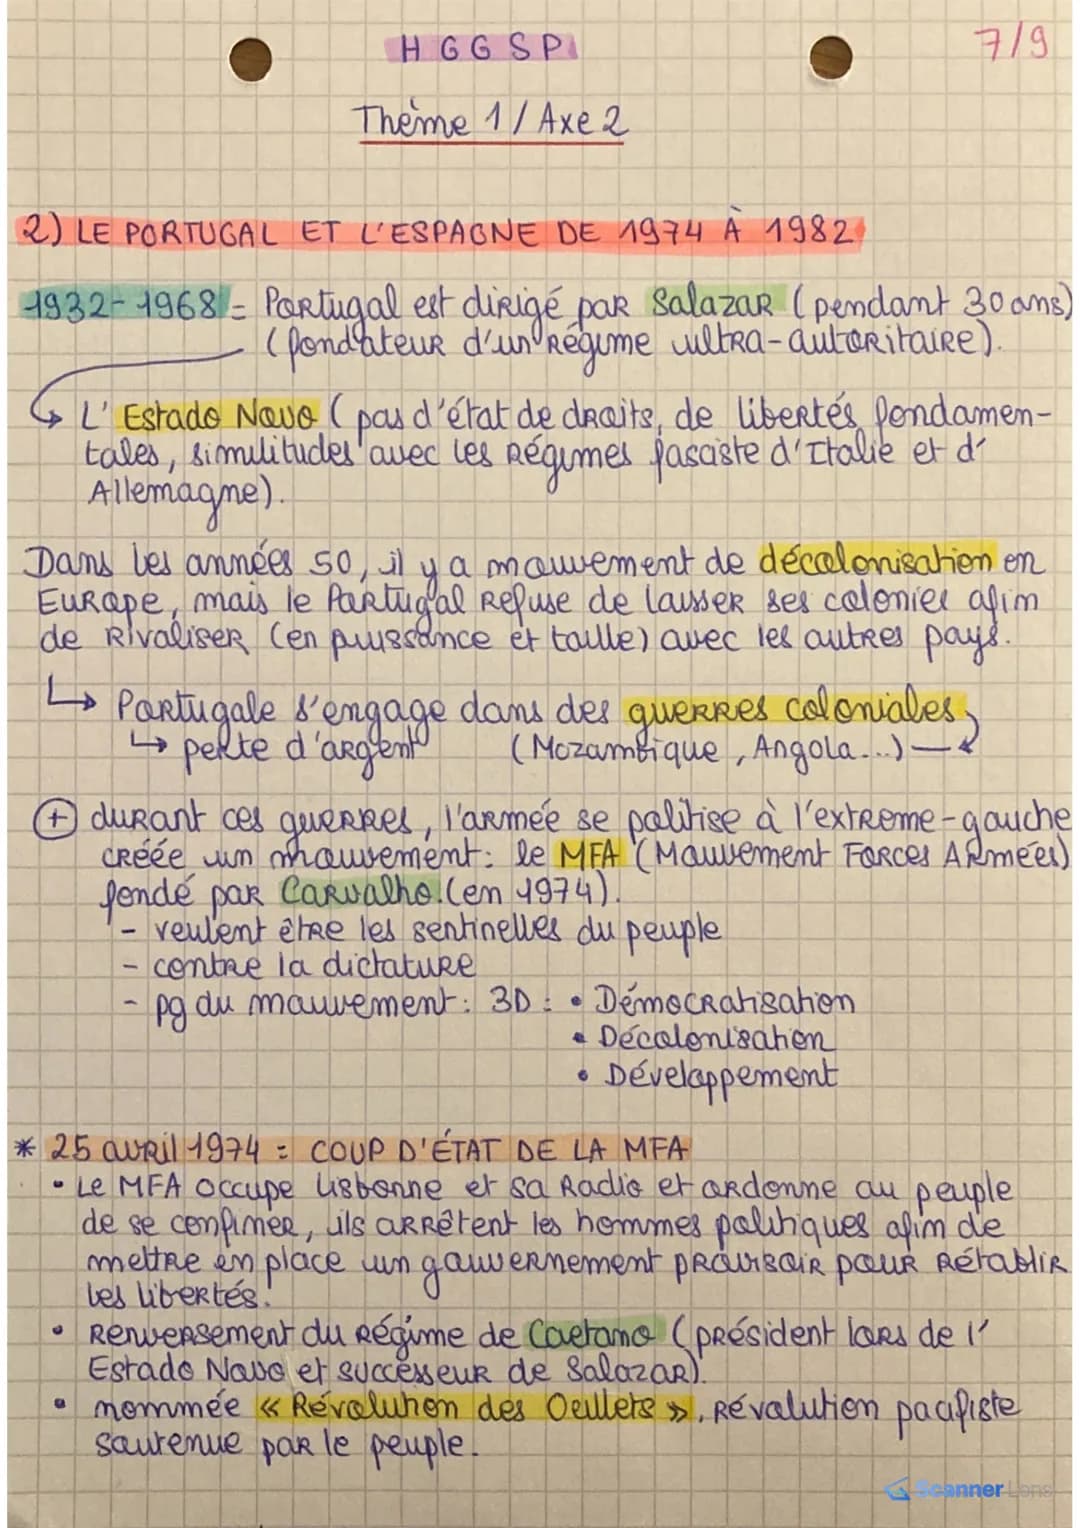 HGGSP
7/9
Thème 1 / Axe 2
2) LE PORTUGAL ET L'ESPAGNE DE 1974 À 1982
1932-1968 = Portugal est dirigé par Salazar (pendant 30 ans)
(fondateur d'un régime ultra-autoritaire).
↳ L'Estado Novo (pas d'état de droits, de libertés fondamen-
tales, similitudes avec les régimes fasciste d'Italie et d'
Allemagne).
Dans les années 50, il y a mouvement de décolonisation en
Europe, mais le Portugal refuse de laisser ses colonies afim
de rivaliser (en puissance et taille) avec les autres pays.
↳ Portugale s'engage dans des guerres coloniales
↳ perte d'argent (Mozambique, Angola...)
⊕ durant ces guerres, l'armée se politise à l'extreme-gauche
créée un mouvement: le MFA (Mouvement Forces Armées)
fondé par Carvalho.(en 1974).
- veulent être les sentinelles du peuple
- contre la dictature
- pg du mouvement: 3D : • Démocratisation
• Décolonisation
• Développement
* 25 avril 1974 = COUP D'ÉTAT DE LA MFA
• Le MFA occupe Lisbonne et sa Radio et ordonne au peuple
de se confiner, ils arrêtent les hommes politiques afim de
mettre en place un gouvernement provisoir pour rétablir
les libertés.
• Renversement du régime de Caetano (président lors de l'
Estado Novo et successeur de Salazar).
• nommée « Révolution des Oeillets », révolution pacifiste
soutenue par le peuple.
Scanner Lens